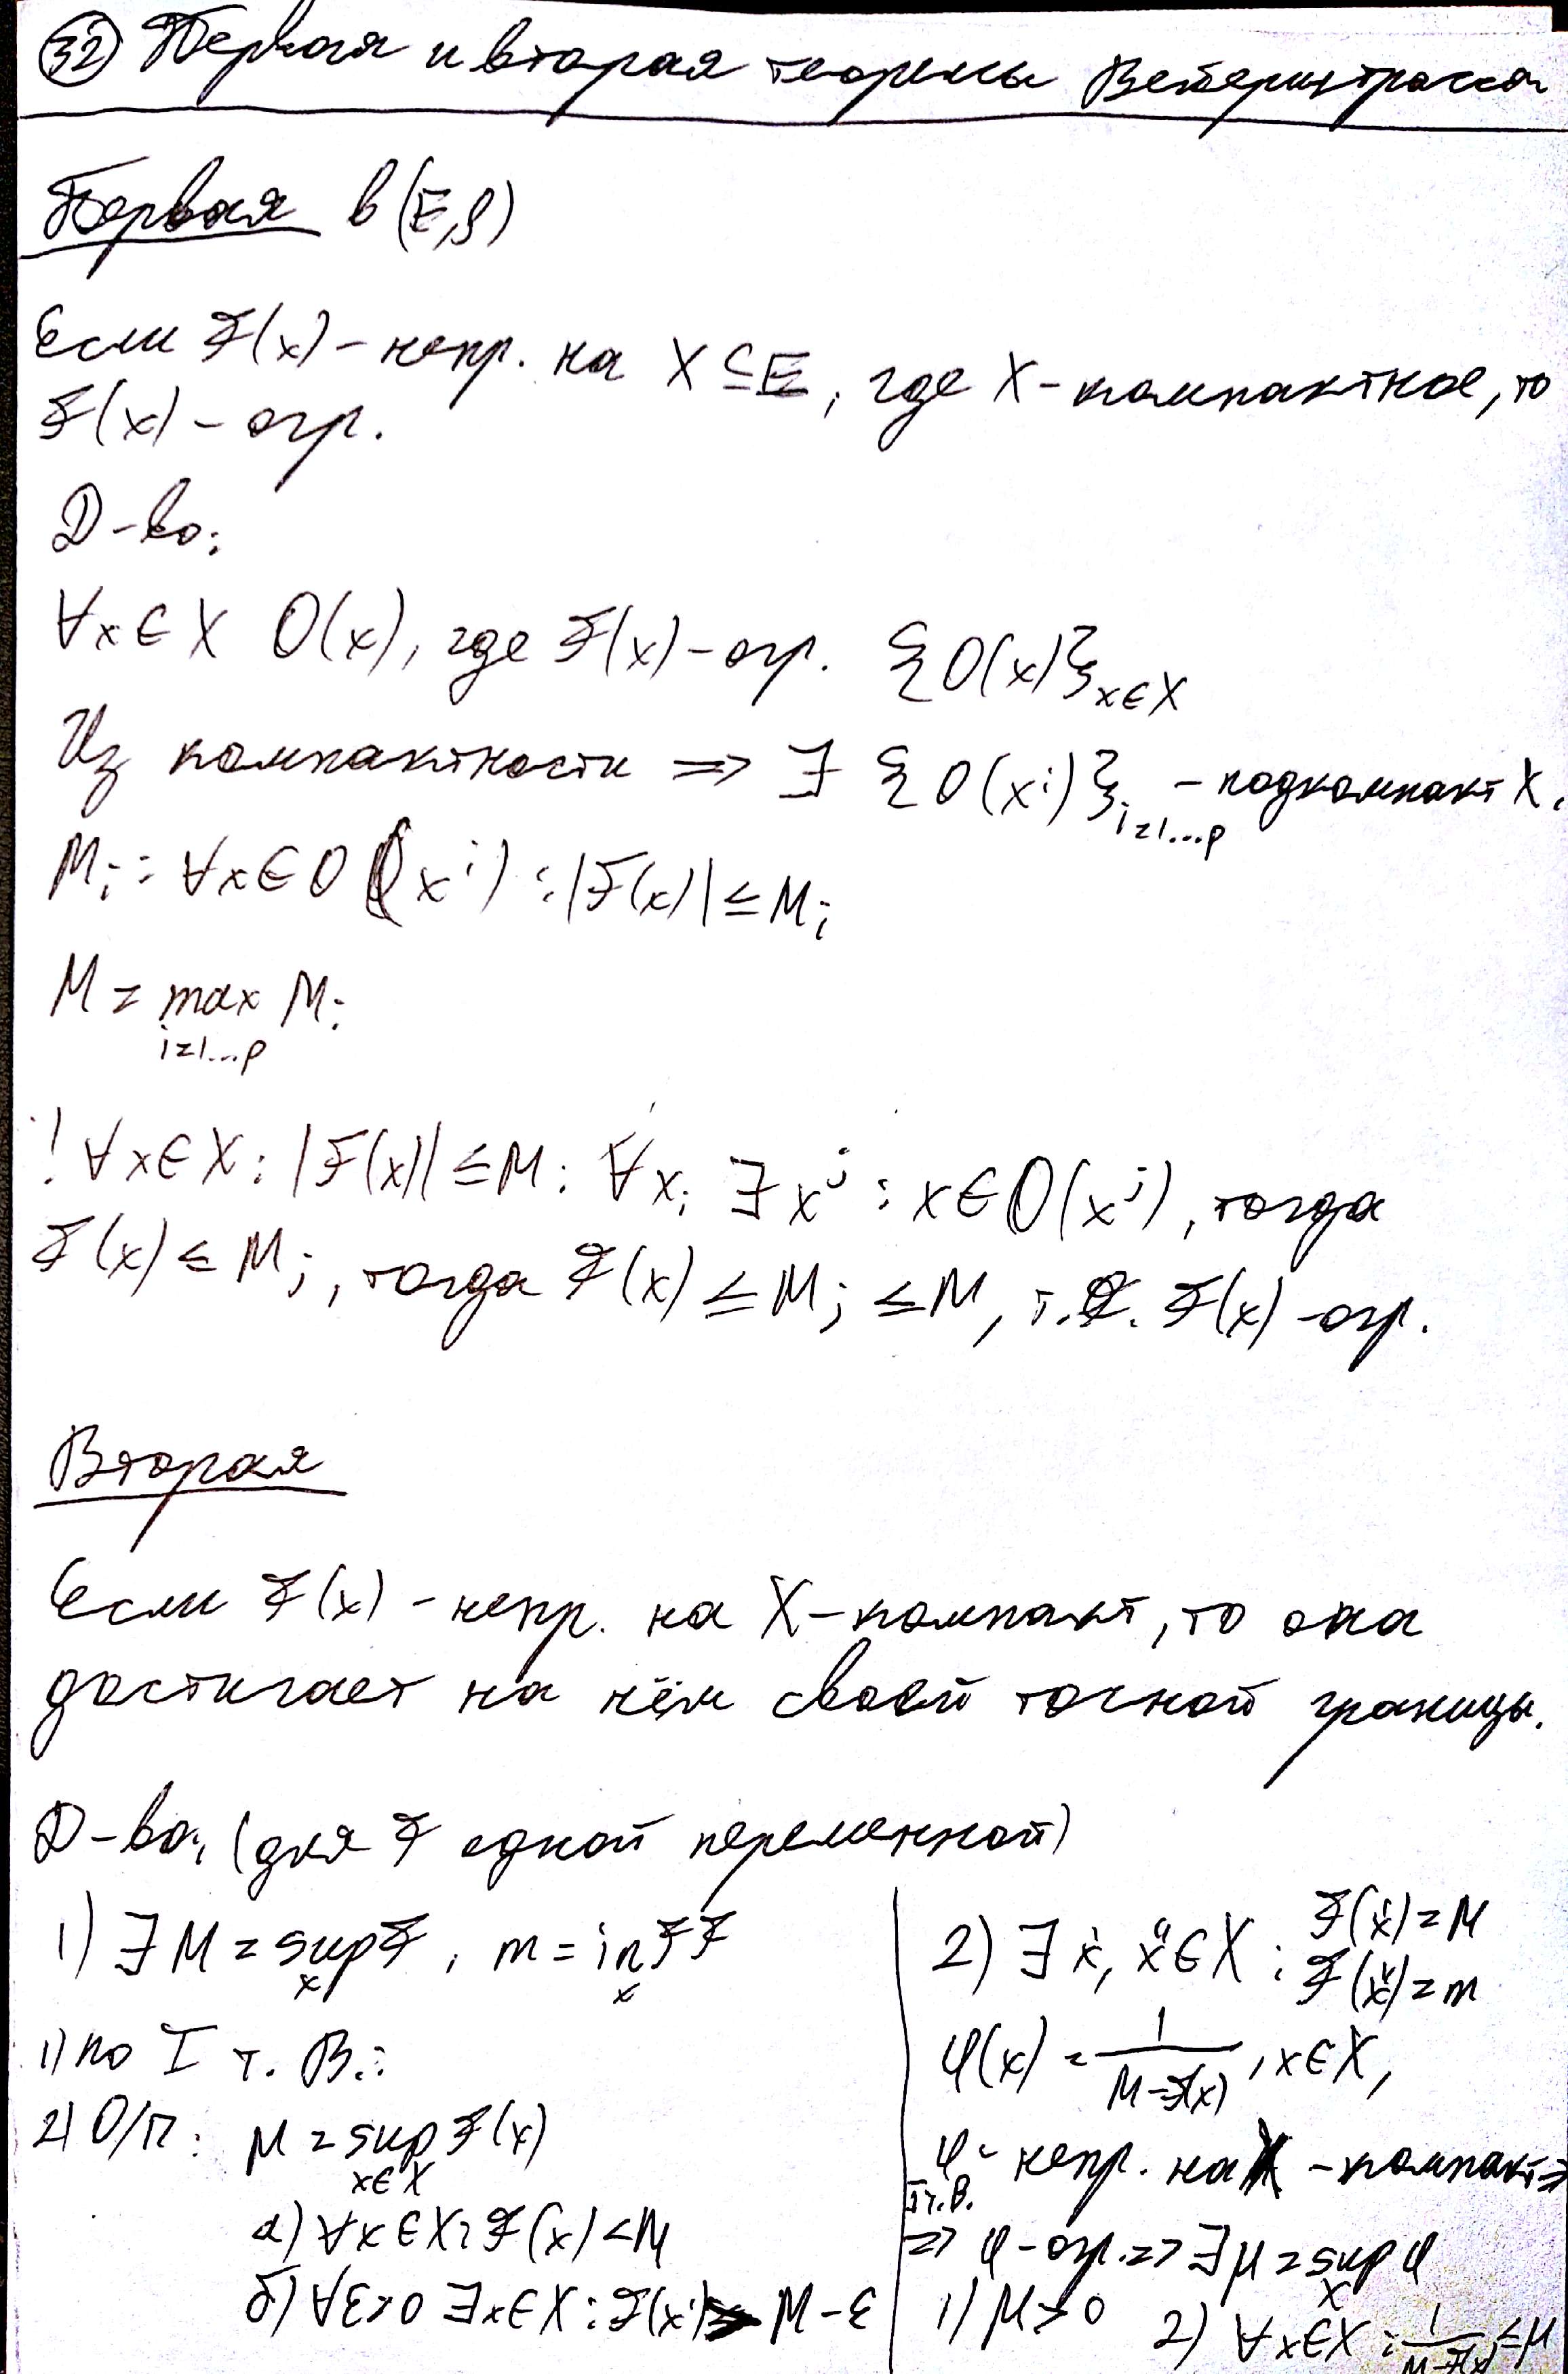 32 Первая и вторая теоремы Вейерштрасса
Первая в (E,ρ)
Если F(x) – непр. на X ⊆ E, где X – компактное, то
F(x) – огр.
Д-во:
∀x ∈ X O(x), где F(x) – огр. {O(x)}_{x∈X}
Из компактности => ∃ {O(xⁱ)}_{i=1...p} – подкомпакт X.
M_i: ∀x ∈ O(xⁱ): |F(x)| ≤ M_i
M = max M_i
i=1...p
! ∀x ∈ X: |F(x)| ≤ M: ∀x: ∃ xʲ: x ∈ O(xʲ), тогда
F(x) ≤ M_j, тогда F(x) ≤ M_j ≤ M, т.е. F(x) – огр.
Вторая
Если F(x) – непр. на X – компакт, то она
достигает на нём своей точной границы.
Д-во: (для F одной переменной)
1) ∃ M = sup F, m = inf F
x x
1) по I т. В.:
2) О/п: M = sup F(x)
x∈X
а) ∀x ∈ X: F(x) < M
б) ∀ε>0 ∃x ∈ X: F(x') > M – ε
2) ∃ x', x'' ∈ X: F(x') = M
F(x'') = m
φ(x) = 1/(M–F(x)), x ∈ X,
φ – непр. на X – компакт =>
I т. В.
=> φ – огр. => ∃ μ = sup φ
X
1) μ > 0 2) ∀x ∈ X: 1/(M–F(x)) ≤ μ